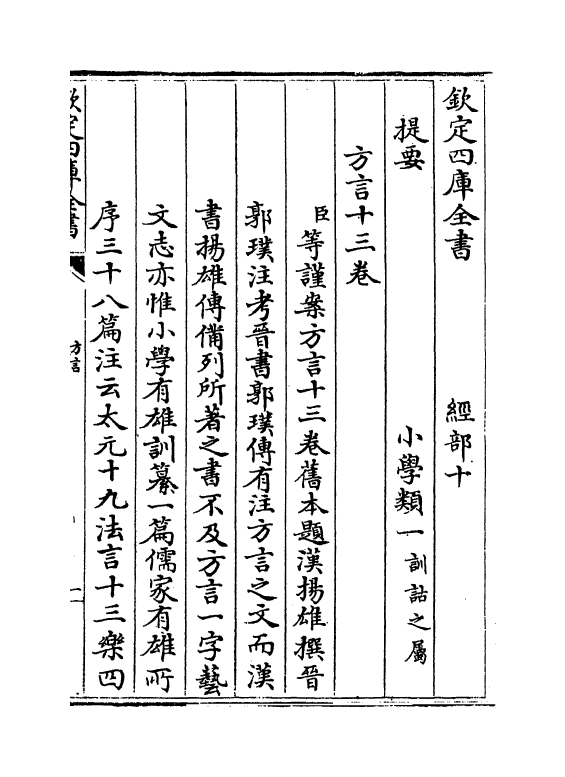 欽定四庫全書 經部十
提要 小學類一訓詁之屬
方言十三卷
臣等謹案方言十三卷舊本題漢揚雄撰晉
郭璞注考晉書郭璞傳有注方言之文而漢
書揚雄傳備列所著之書不及方言一字藝
文志亦惟小學有雄訓纂一篇儒家有雄所
序三十八篇注云太元十九法言十三樂四
欽定四庫全書 方言 一